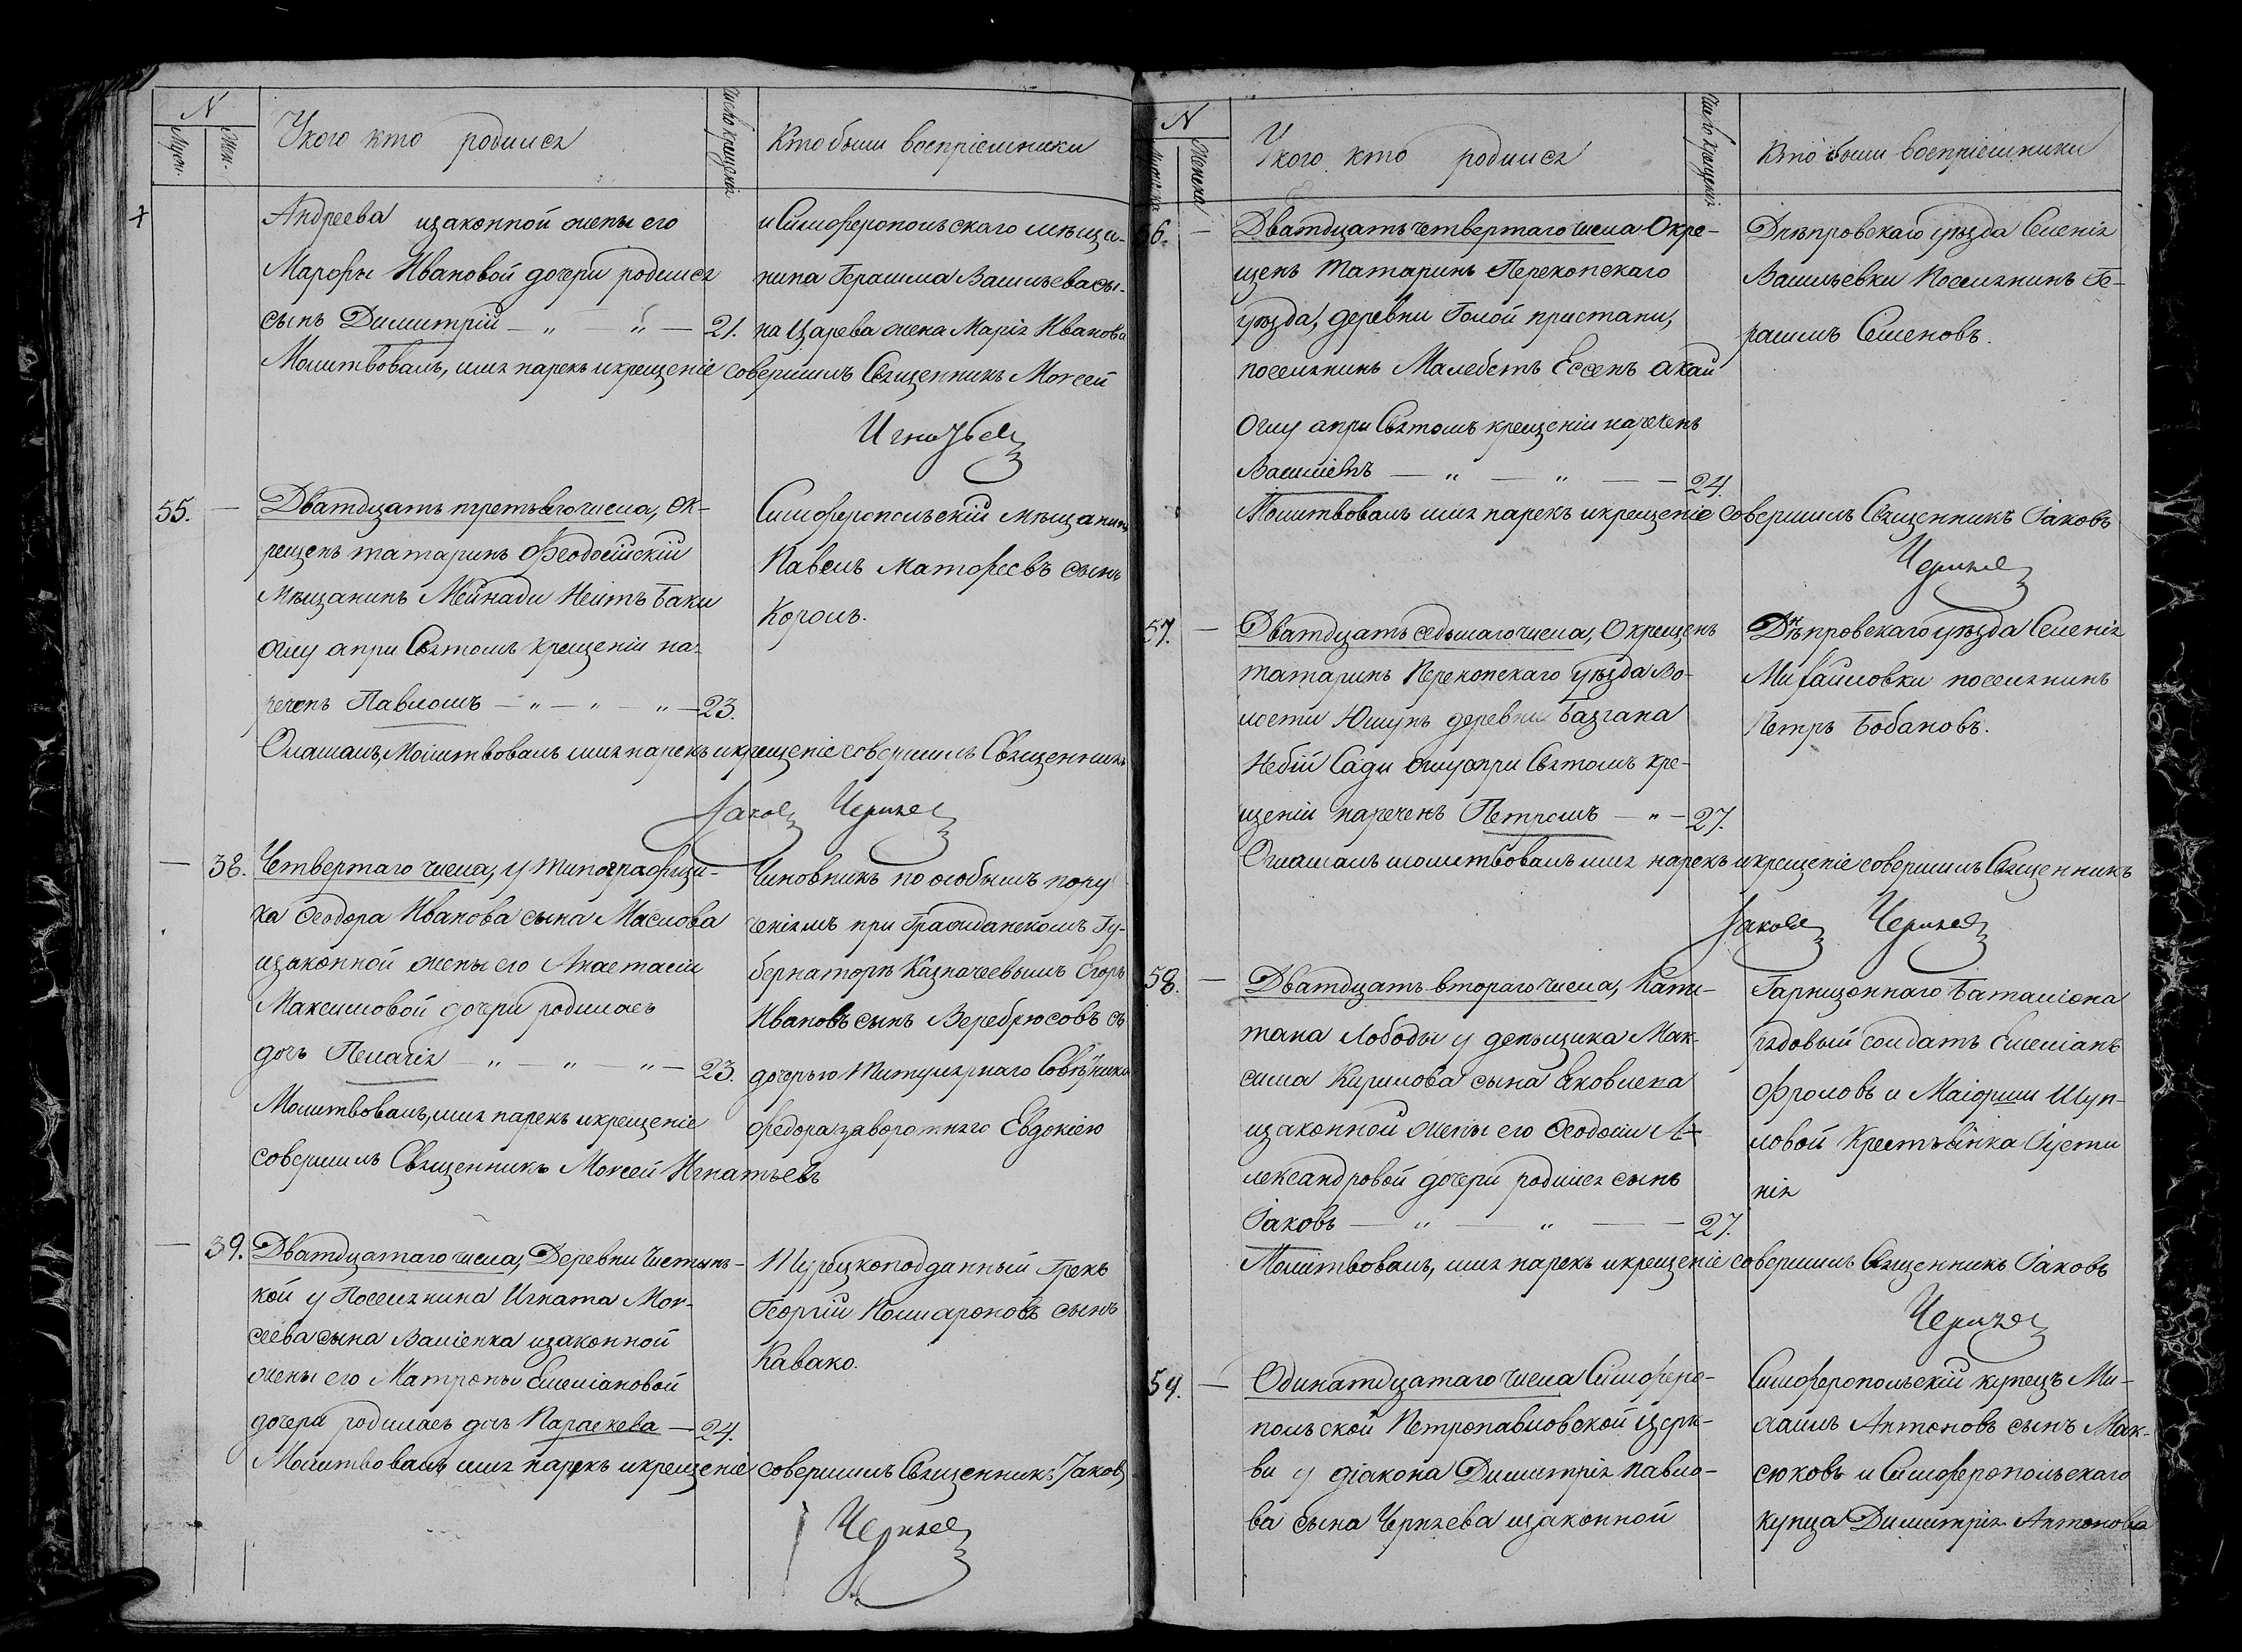 N
Мужск.
Жен.
У кого кто родился
Число крещенія
Кто были воспріемники
Андреева изаконной жены его
Марфы Ивановой дочери родился
сынъ Димитрій — „ „ — 21.
и Симферопольскаго мѣща-
нина Герасима Васильева сы-
на Царева жена Марія Иванова
Молитвовалъ, имя нарекъ и крещеніе совершилъ Священникъ Моѵсей
Игнатьев
55. —
Дватдцать третьяго числа, Ок-
рещенъ татаринъ Феодосійскій
Мѣщанинъ
Баки
оглу а при Святомъ крещеніи на-
реченъ Павломъ — „ — „ — „ — 23.
Симферопольскій мѣщанинъ
Павелъ Матфеевъ сынъ
Король.
Оглашалъ, Молитвовалъ имя нарекъ и крещеніе совершилъ Священникъ
Іаковъ Черняев
— 38.
Четвертаго числа, у типографщи-
ка Феодора Иванова сына Маслова
изаконной жены его Анастасіи
Максимовой дочери родилась
дочь Пелагія — „ — „ — „ — 23.
Молитвовалъ, имя нарекъ и крещеніе
совершилъ Священникъ Моѵсей Игнатьевъ
Чиновникъ по особымъ пору
ченіямъ при Гражданскомъ Гу-
бернаторѣ Казначеевымъ Егоръ
Ивановъ сынъ Веребрюсовъ съ
дочерью Титулярнаго Совѣтника
Федора Заворотняго Евдокіею
— 39.
Дватдцатаго числа, Деревни Чистинь-
кой у Поселянина Игната Моѵ-
сеева сына Василенка изаконной
жены его Матроны Емеліановой
дочери родилась дочь Параскева — 24.
Турецкоподданный Грекъ
Георгій сынъ
Кавако.
Молитвовалъ имя нарекъ и крещеніе совершилъ Священникъ Іаковъ
Черняев
N
Мужска
Женска
У кого кто родился
Число крещенія
Кто были воспріемники
56. —
Дватдцать четвертаго числа Окре-
щенъ Татаринъ Перекопскаго
уѣзда, деревни Голой пристани,
поселянинъ Малебетъ Ессенъ акай
Оглу а при Святомъ крещеніи нареченъ
Василіемъ — „ — „ — — 24.
Днѣпровскаго уѣзда Селенія
Васильевки Поселянинъ Ге-
расимъ Семеновъ.
Молитвовалъ имя нарекъ и крещеніе совершилъ Священникъ Іаковъ
Черняев
57. —
Дватдцать седьмаго числа, Окрещенъ
татаринъ Перекопскаго уѣзда Во-
лости Юшунь деревни Базгана
Небій Сади оглу а при Святомъ кре-
щеніи нареченъ Петромъ — „ — 27.
Днѣпровскаго уѣзда Селенія
Михайловки поселянинъ
Петръ Бобановъ.
Оглашалъ молитвовалъ имя нарекъ и крещеніе совершилъ Священникъ
Іаковъ Черняев
58. —
Дватдцать втораго числа, Капи-
тана Лободы у деньщика Мак-
сима Кирилова сына Яковлена
изаконной жены его Феодосіи А-
лександровой дочери родился сынъ
Іаковъ — „ — „ — — 27.
Гарнизоннаго Баталіона
рядовый солдатъ Емеліанъ
Фроловъ и Маіорши Шуп-
ловой Крестьянка Іусти
нія
Молитвовалъ, имя нарекъ и крещеніе совершилъ Священникъ Іаковъ
Черняев
59. —
Одинатдцатаго числа Симферо-
польской Петропавловской Церк-
ви у діакона Димитрія Павло-
ва сына Черняева изаконной
Симферопольскій купецъ Ми-
хаилъ Антоновъ сынъ Мак-
сюковъ и Симферопольскаго
купца Димитрія Антонова